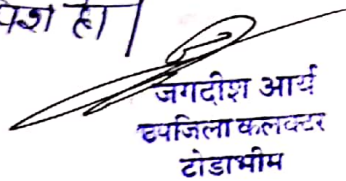 पेश हो।
जगदीश आर्य
उपजिला कलक्टर
टोडाभीम